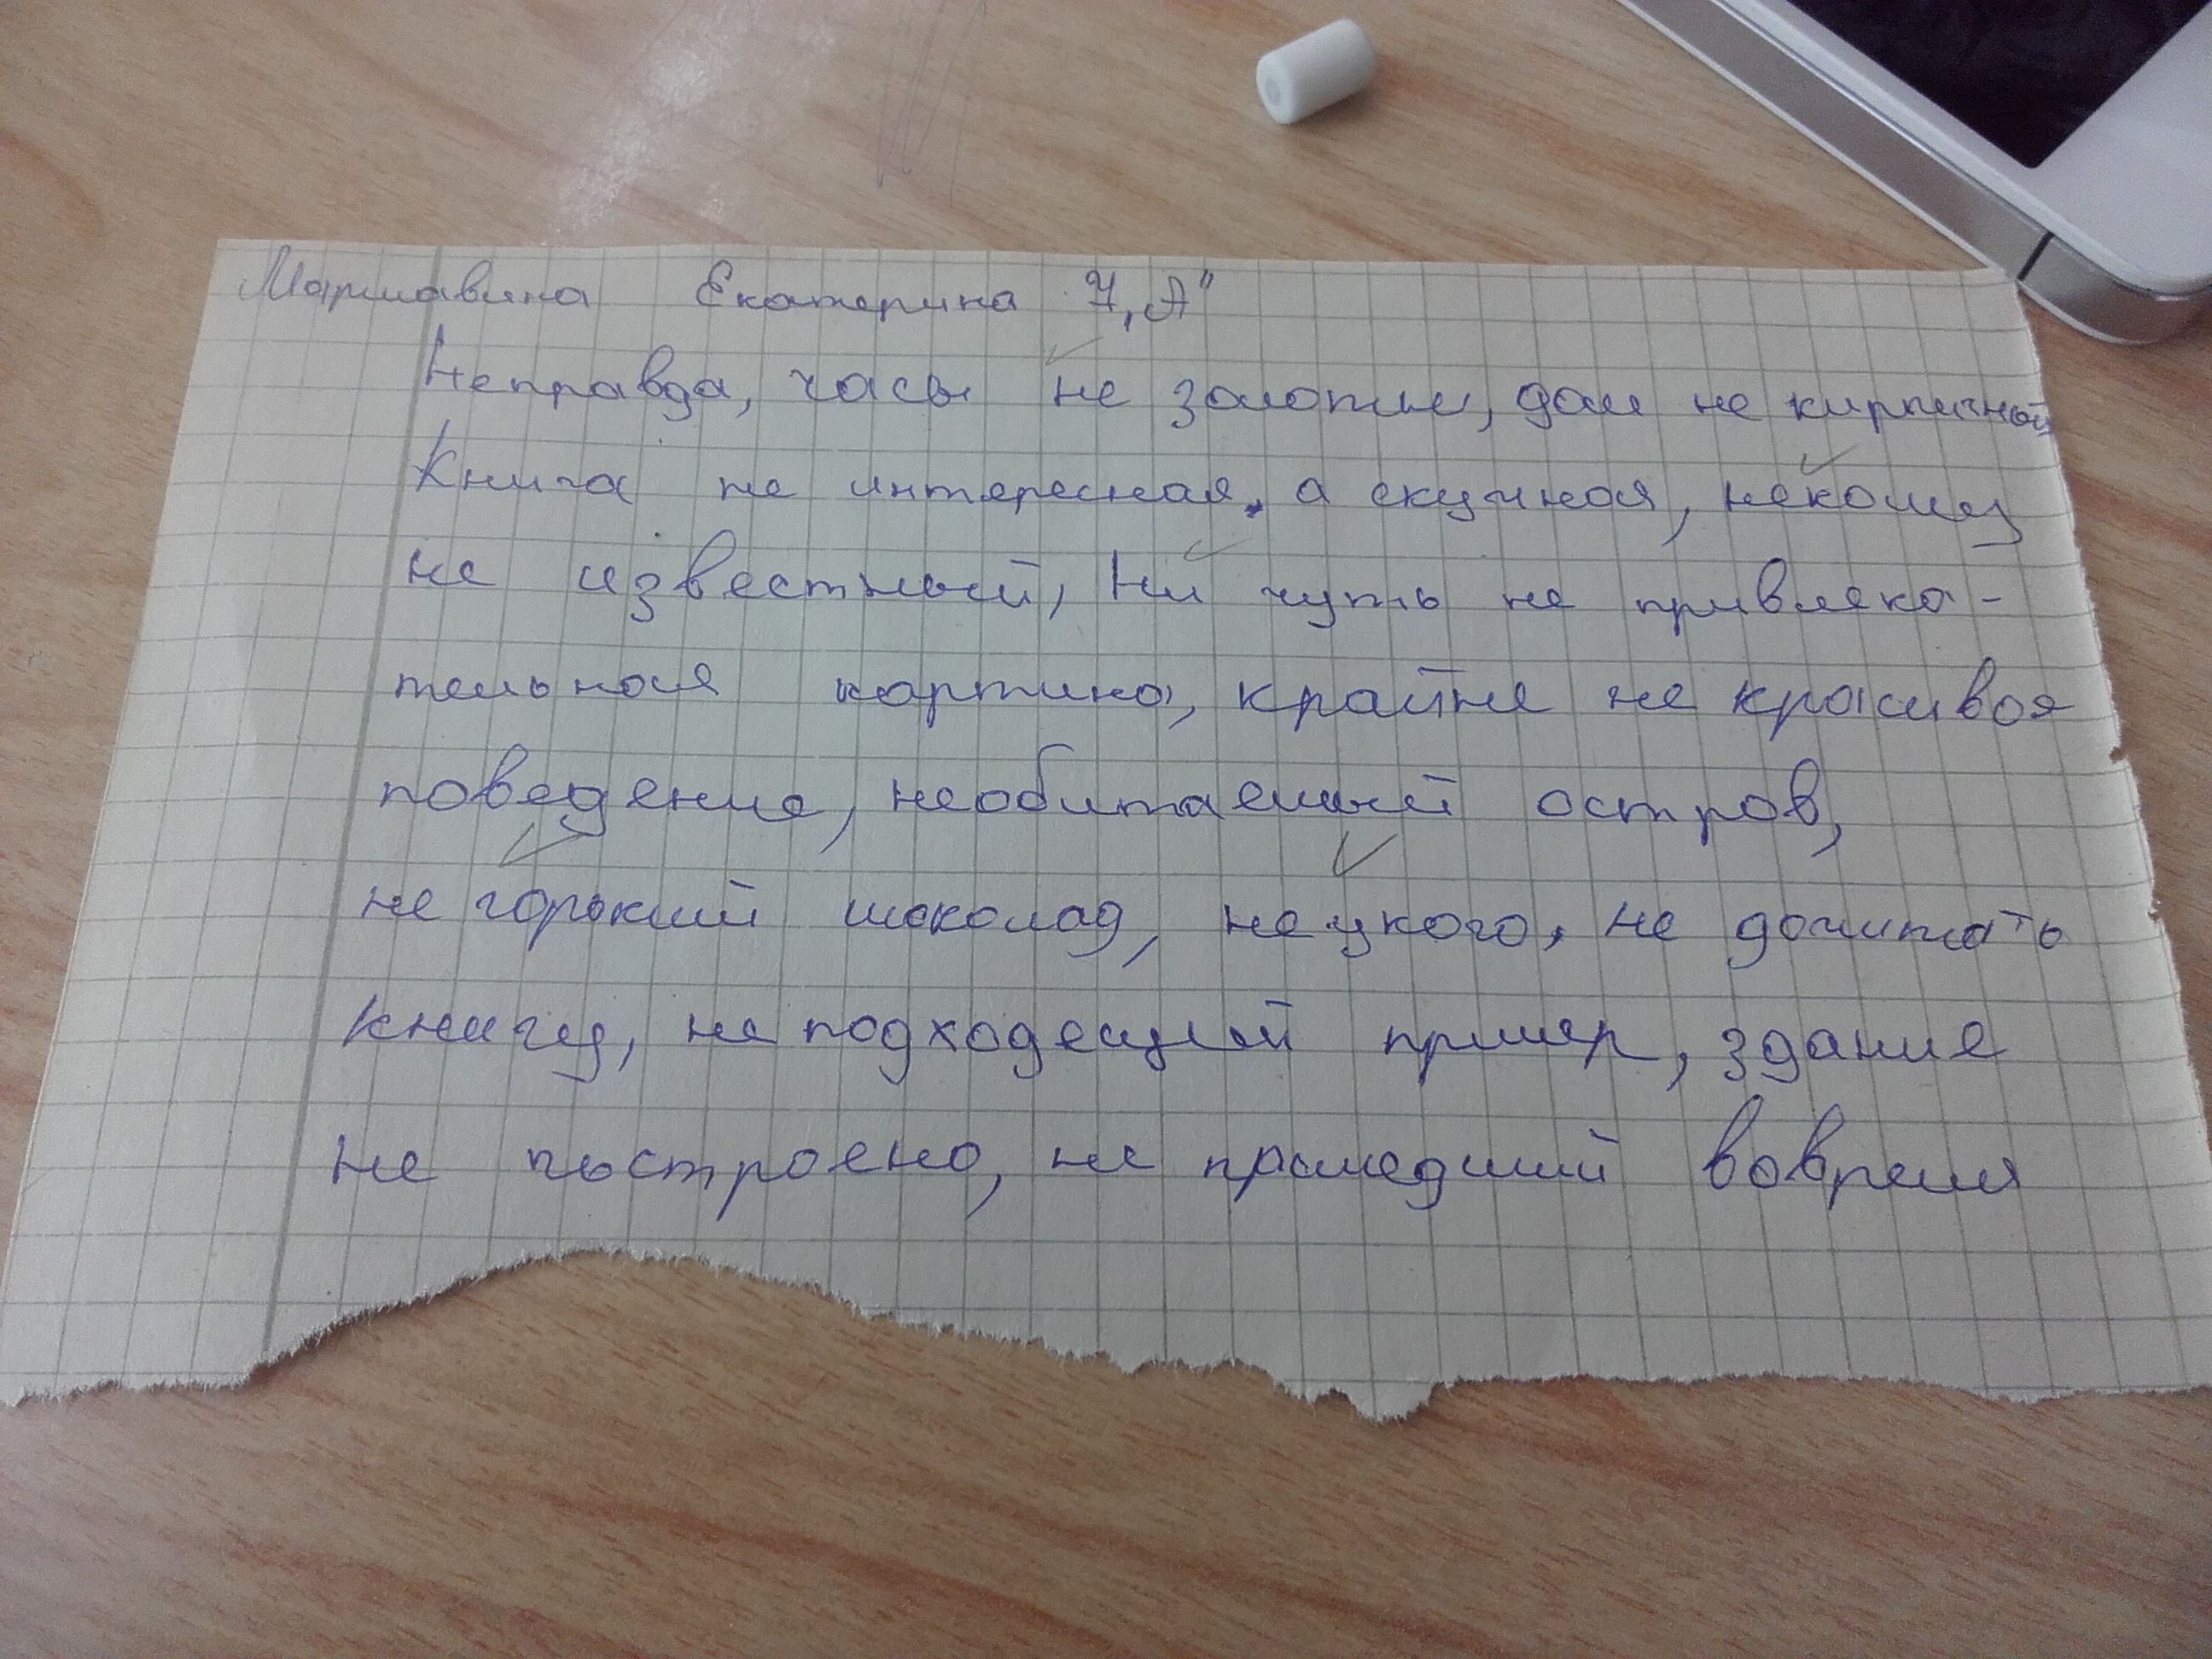 Маршавина Екатерина 7 „А"
Неправда, часы не золотые, дом не кирпичный
Книга не интересная, а скучная, некому
не известный, Ни чуть не привлека-
тельная картина, крайне не красивая
поведение, необитаемый остров,
не горький шоколад, неукого, не дочитать
книгу, не подходещий пример, здание
не построено, не пришедший вовремя